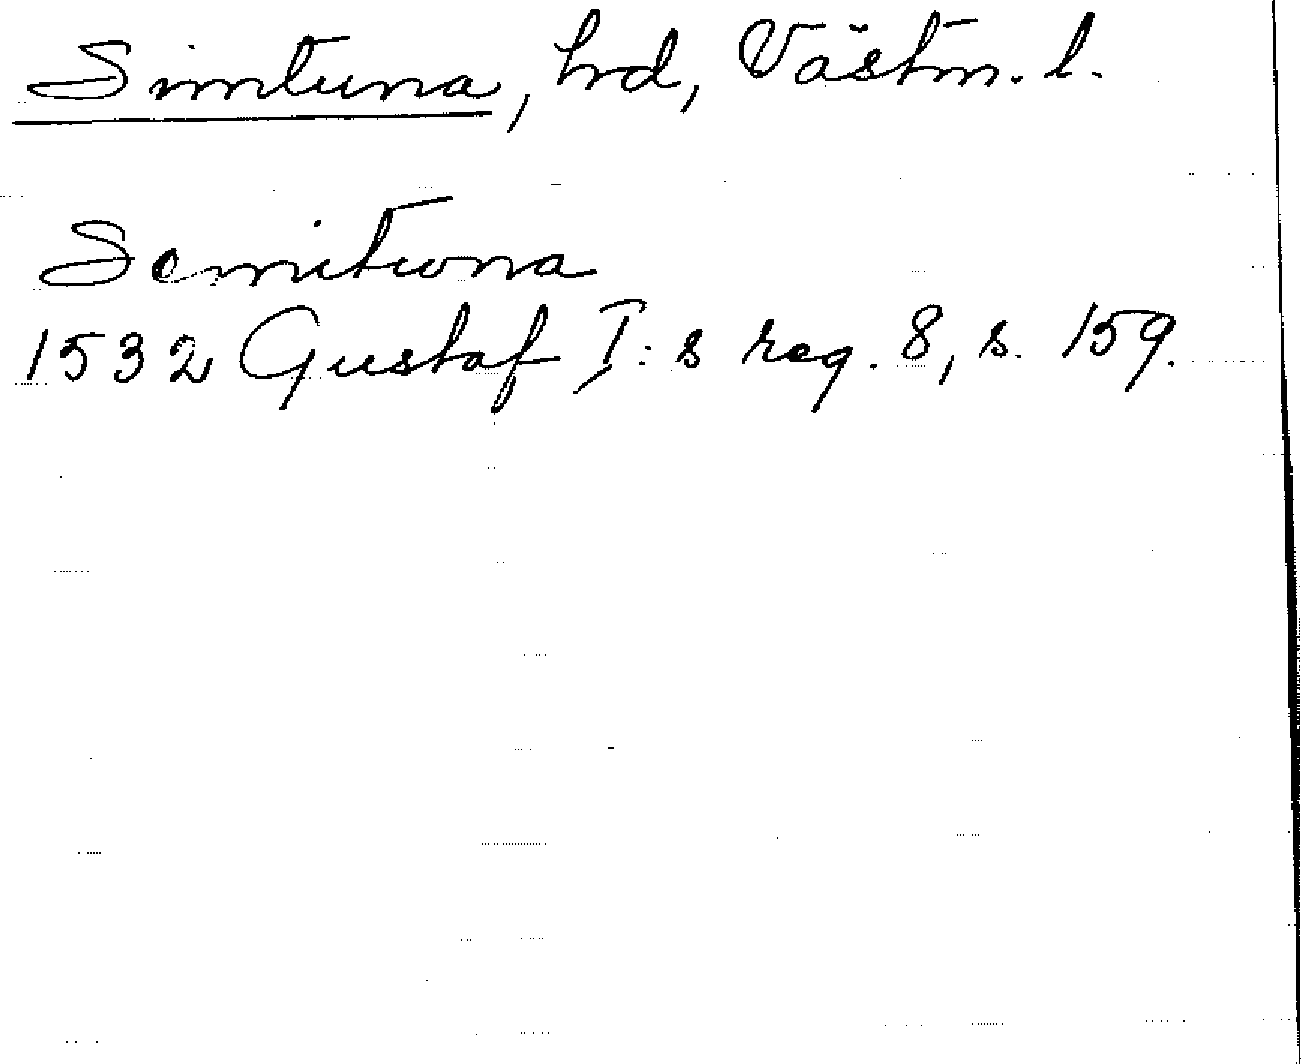 Simtuna, hd, Västm. l.
Semitwna
1532 Gustaf I:s reg. 8, s. 159.